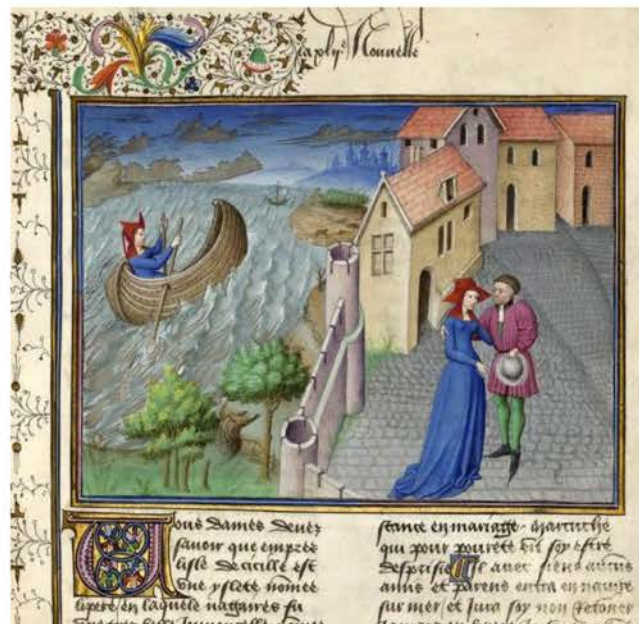 La xlij.e Nouuelle
Uous dames deuez
sauoir que emprez
lisle de cicille est
vne yslete nomee
lipere en laquele nagaires fu
stance en mariage. Martuche
qui pour pourete vit soy estre
desprisie Il auec siens aucuns
amis et parens entra en nauire
sur mer et iura soy non retorner